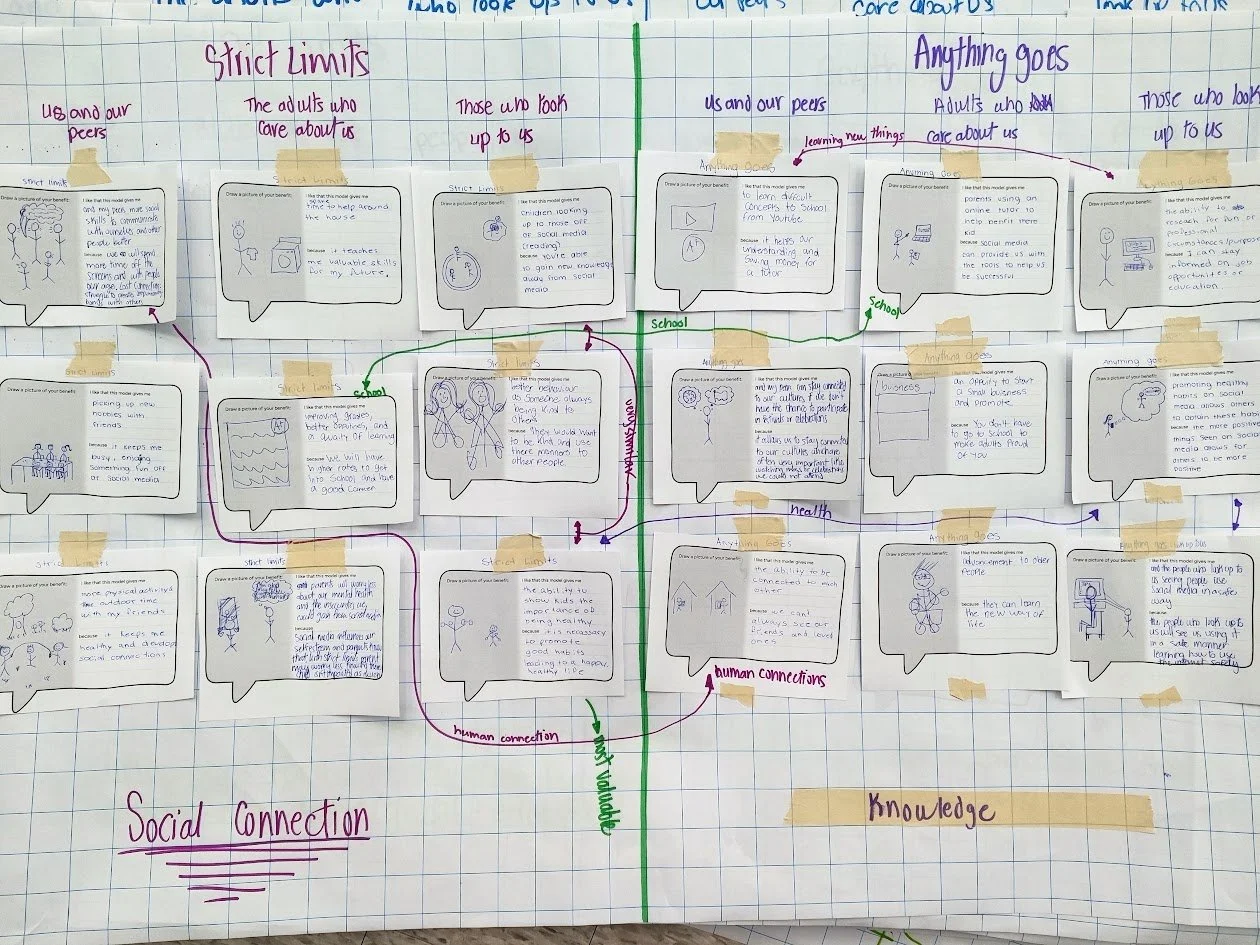 who look up to us
care about us
Strict Limits
Anything goes
us and our
peers
The adults who
care about us
Those who look
up to us
us and our peers
Adults who
care about us
Those who look
up to us
learning new things
Strict limits
Draw a picture of your benefit:
I like that this model gives me
and my peers more social
skills to communicate
with ourselves and other
people better
because we will spend
more time off the
screens and with people
our age. Lost connections
struggle to create
bonds with others
Strict Limits
Draw a picture of your benefit:
I like that this model gives me
some
time to help around
the house
because it teaches
me valuable skills
for my future.
Strict Limits
Draw a picture of your benefit:
I like that this model gives me
Children looking
up to more off
of social media
(reading)
because you're able
to gain new knowledge
away from social
media
Anything goes
Draw a picture of your benefit:
I like that this model gives me
to learn difficult
concepts to School
from Youtube
A+
because it helps our
understanding and
saving money for
a tutor
Anything Goes
Draw a picture of your benefit:
I like that this model gives me
parents using an
online tutor to
help benfit there
kid
because social media
can provide us with
the tools to help us
be successful
Anything Goes
Draw a picture of your benefit:
I like that this model gives me
the ability to
research for fun or
professional
circumstances/purposes
because I can stay
informed on job
opportunities or
education.
School
School
School
Strict limits
Draw a picture of your benefit:
I like that this model gives me
picking up new
hobbies with
friends
because it keeps me
busy, enjoying
something fun off
of social media
Strict Limits
Draw a picture of your benefit:
I like that this model gives me
improving grades,
better
and a quality of learning
A+
because We will have
higher rates to get
into School and have
a good career
Strict Limits
Draw a picture of your benefit:
I like that this model gives me
our
as someone always
being kind to
others
because They would want
to be kind and use
there manners to
other people.
very similar
Anything goes
Draw a picture of your benefit:
I like that this model gives me
and my peers can stay connected
to our culture, if we don't
have the chance to participate
in festivals or celebrations
because
it allows us to stay connected
to our cultures, which are
often very important. like
watching videos or celebrations
we could not attend
Anything goes
business
I like that this model gives me
an oppurity to start
a small business
and promote.
because You don't have
to go to School to
make adults Proud
of you
Anything goes
Draw a picture of your benefit:
I like that this model gives me
promoting healthy
habits on social
media allows others
to obtain these habits
because the more positive
things seen on social
media allows for
others to be more
positive
health
Strict Limits
Draw a picture of your benefit:
I like that this model gives me
more physical activity &
outdoor time
with my friends
because it keeps me
healthy and develop
social connections
Strict limits
Draw a picture of your benefit:
I like that this model gives me
parents will worry less
about our mental health
and the insecurities we
could gain from social media
because
Social media influences our
selfesteem and parents know
that with strict limits parent
may worry less knowing there
child
Strict Limits
Draw a picture of your benefit:
I like that this model gives me
the ability to
show kids the
importance of
being healthy
because it is necessary
to promote
good habits
leading to a happy,
healthy life
Anything Goes
Draw a picture of your benefit:
I like that this model gives me
the ability to be
connected to each
other
because we cant
always see our
friends and loved
ones
Anything goes
Draw a picture of your benefit:
I like that this model gives me
advancement to older
People
because they can learn
the new way of
life
Anything goes
Draw a picture of your benefit:
I like that this model gives me
and the people who look up to
us seeing people use
Social media in a safe
way
because
the people who look up to
us will see us using it
in a safe manner
learning how to use
the internet safely
human connections
human connection
most valuable
Social Connection
Knowledge